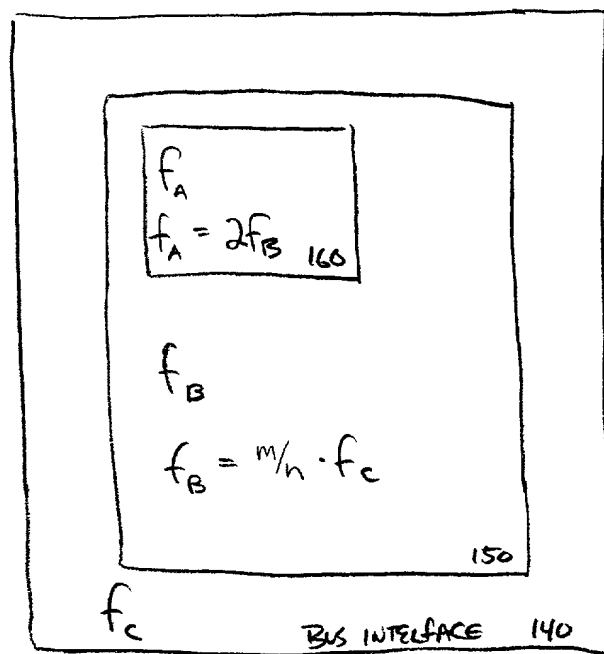 f_A
f_A = 2f_B 160
f_B
f_B = m/n · f_C
150
f_C
BUS INTERFACE 140